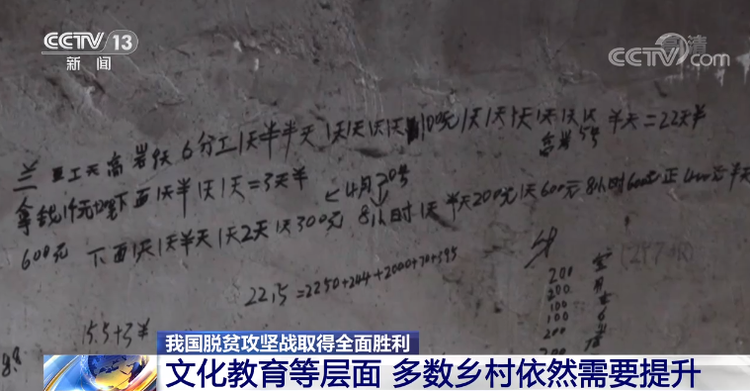 CCTV 13
新闻
高清
CCTV.com
兰 工天高岩 天 6分工 1天半半天 1天1天1天1天 100元 1天1天1天1天1天1天 半天=22天半
拿钱 元 下面1天半1天1天=3天半
4月20号
600元 下面1天1天半天1天2天1天300元 8小时1天 半天200元1天600元 8小时600元 正400元半天
22.5=2250+244+2000+70+395
200
200
100
100
200
200
15.5+3半
我国脱贫攻坚战取得全面胜利
文化教育等层面 多数乡村依然需要提升